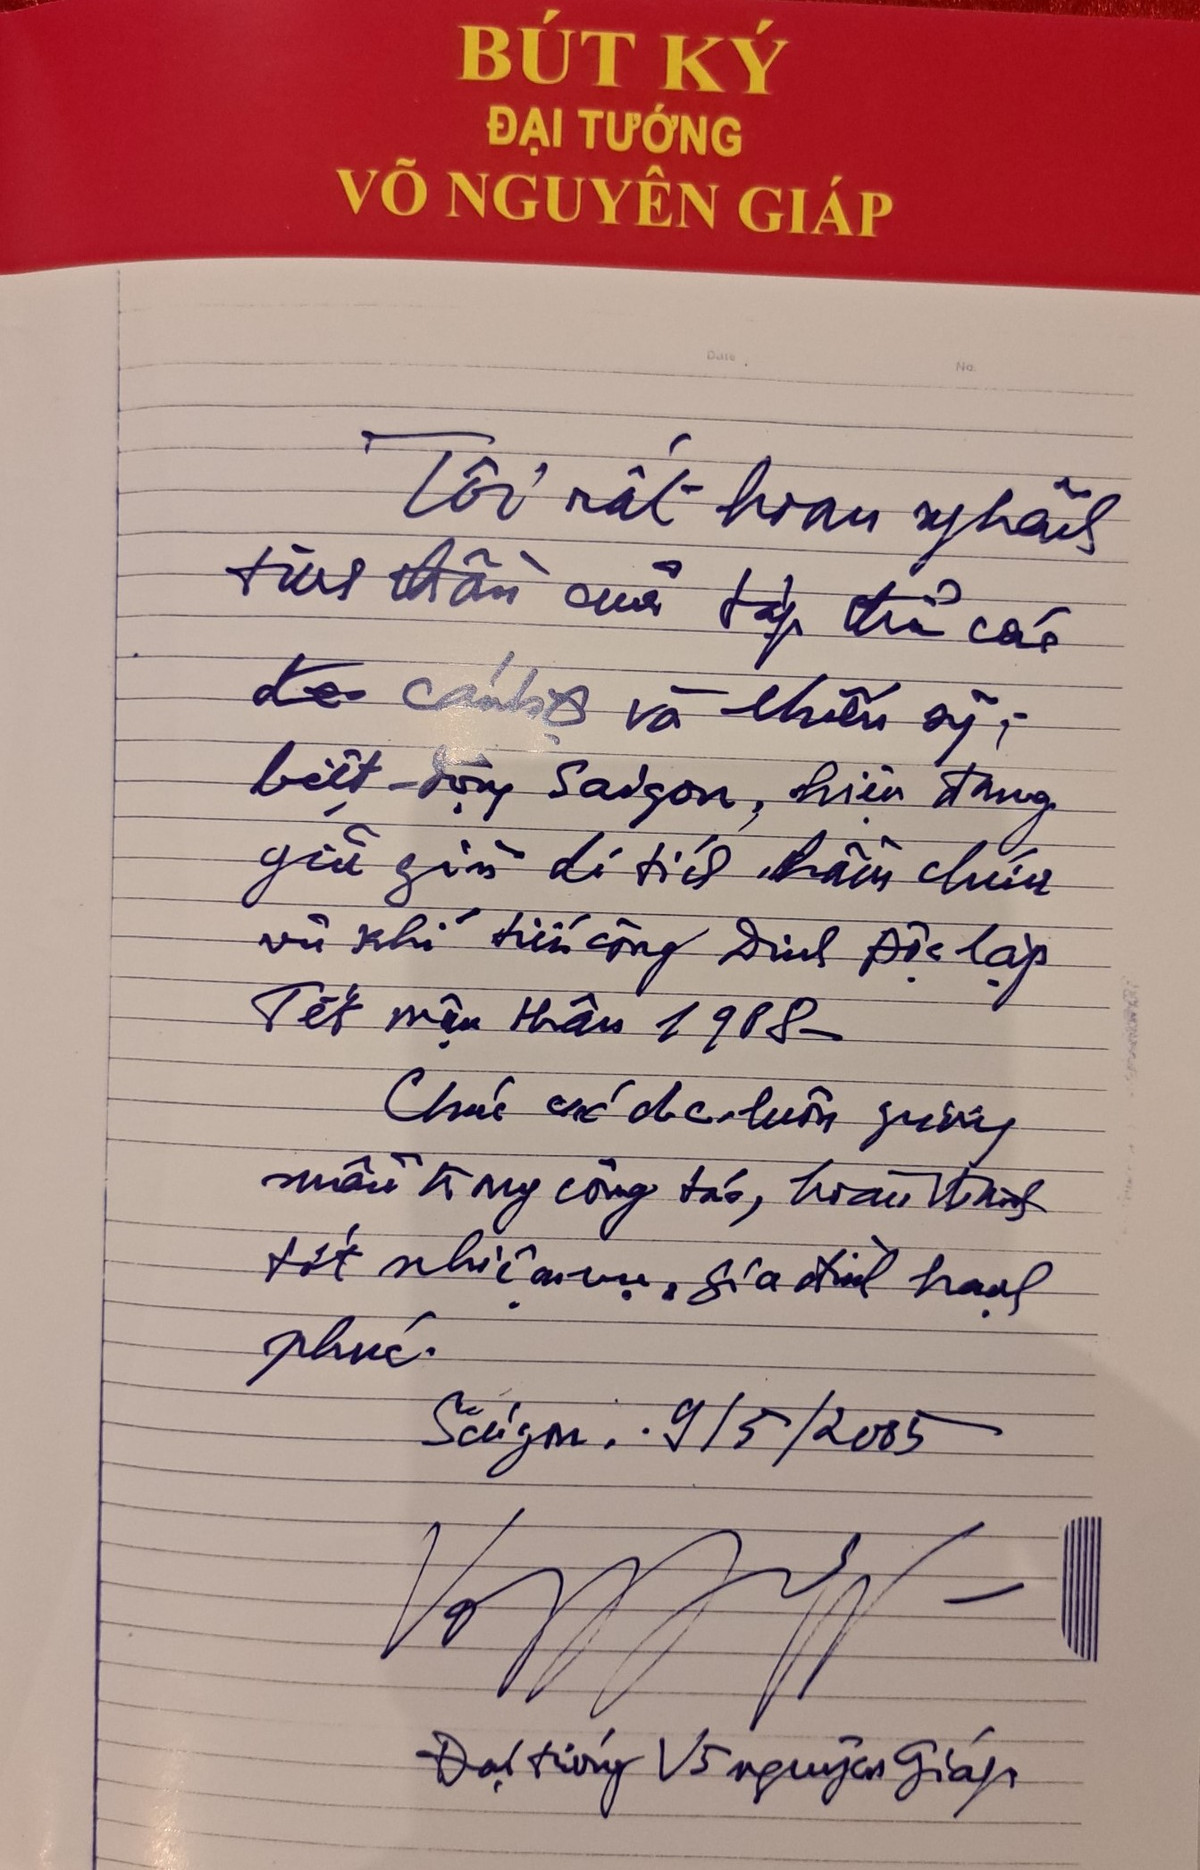 BÚT KÝ
ĐẠI TƯỚNG
VÕ NGUYÊN GIÁP
Date No.
Tôi rất hoan nghênh
tinh thần của tập thể các
đ/c cán bộ và chiến sỹ,
biệt-động Saigon, hiện đang
giữ gìn di tích hầm chứa
vũ khí tiến công Dinh Độc lập
Tết mậu thân 1968
Chúc các đ/c luôn gương
mẫu trong công tác, hoàn thành
tốt nhiệm vụ, gia đình hạnh
phúc.
Sàigon, 9/5/2005
Đại tướng Võ nguyên Giáp